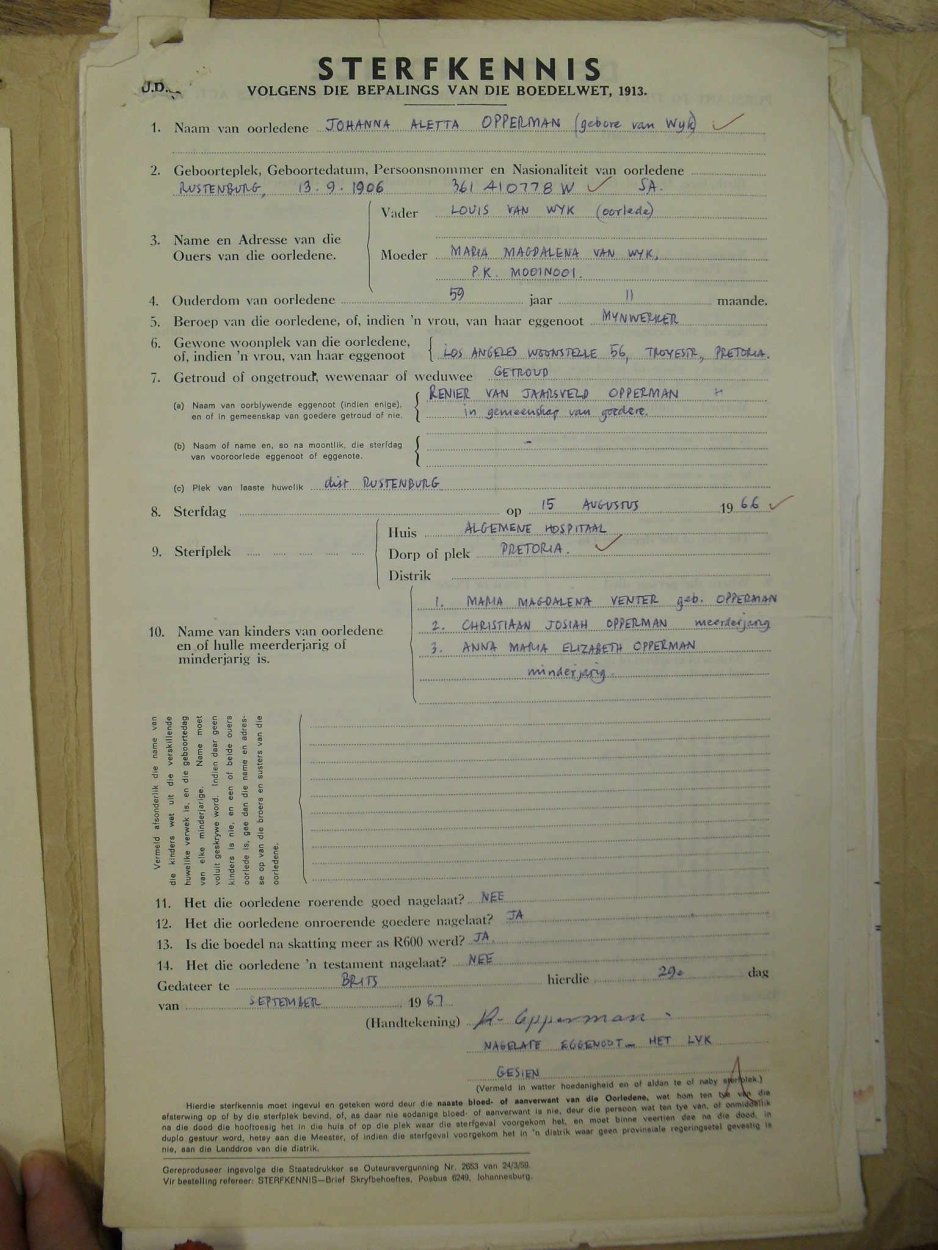 STERFKENNIS
J.D.
VOLGENS DIE BEPALINGS VAN DIE BOEDELWET, 1913.
1. Naam van oorledene JOHANNA ALETTA OPPERMAN (gebore van Wyk)
2. Geboorteplek, Geboortedatum, Persoonsnommer en Nasionaliteit van oorledene
RUSTENBURG, 13.9.1906 361 410778 W SA.
3. Name en Adresse van die Ouers van die oorledene.
Vader LOUIS VAN WYK (oorlede)
Moeder MARIA MAGDALENA VAN WYK,
P.K. MOOINOOI.
4. Ouderdom van oorledene 59 jaar 11 maande.
5. Beroep van die oorledene, of, indien 'n vrou, van haar eggenoot MYNWERKER
6. Gewone woonplek van die oorledene,
of, indien 'n vrou, van haar eggenoot LOS ANGELES WOONSTELLE 56, TROYESTR, PRETORIA.
7. Getroud of ongetroud, wewenaar of weduwee GETROUD
(a) Naam van oorblywende eggenoot (indien enige), RENIER VAN JAARSVELD OPPERMAN
en of in gemeenskap van goedere getroud of nie. in gemeenskap van goedere.
(b) Naam of name en, so na moontlik, die sterfdag -
van vooroorlede eggenoot of eggenote.
(c) Plek van laaste huwelik dist RUSTENBURG
8. Sterfdag op 15 AUGUSTUS 1966
9. Sterfplek
Huis ALGEMENE HOSPITAAL
Dorp of plek PRETORIA.
Distrik
10. Name van kinders van oorledene
en of hulle meerderjarig of
minderjarig is.
1. MARIA MAGDALENA VENTER geb. OPPERMAN
2. CHRISTIAAN JOSIAH OPPERMAN meerderjarig
3. ANNA MARIA ELIZABETH OPPERMAN
minderjarig.
Vermeld afsonderlik die name van
die kinders wat uit die verskillende
huwelike verwek is, en die geboortedag
van elke minderjarige. Name moet
voluit geskrywe word. Indien daar geen
kinders is nie, en een of beide ouers
oorlede is, gee dan die name en adres-
se op van die broers en susters van die
oorledene.
11. Het die oorledene roerende goed nagelaat? NEE
12. Het die oorledene onroerende goedere nagelaat? JA
13. Is die boedel na skatting meer as R600 werd? JA.
14. Het die oorledene 'n testament nagelaat? NEE
Gedateer te BRITS hierdie 29e dag
van SEPTEMBER 1967
(Handtekening) R. Opperman
NAGELATE EGGENOOT HET LYK
GESIEN
(Vermeld in watter hoedanigheid en of aldan te of naby sterfplek.)
Hierdie sterfkennis moet ingevul en geteken word deur die naaste bloed- of aanverwant van die Oorledene, wat hom ten tye van die
afsterwing op of by die sterfplek bevind, of, as daar nie sodanige bloed- of aanverwant is nie, deur die persoon wat ten tye van, of onmiddellik
na die dood die hooftoesig het in die huis of op die plek waar die sterfgeval voorgekom het, en moet binne veertien dae na die dood, in
duplo gestuur word, hetsy aan die Meester, of indien die sterfgeval voorgekom het in 'n distrik waar geen provinsiale regeringsetel gevestig is
nie, aan die Landdros van die distrik.
Gereproduseer ingevolge die Staatsdrukker se Outeursvergunning Nr. 2653 van 24/3/59.
Vir bestelling refereer: STERFKENNIS—Brief Skryfbehoeftes, Posbus 6249, Johannesburg.